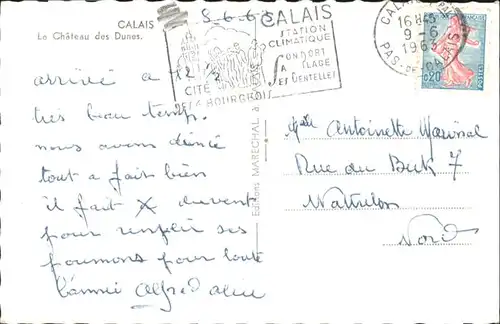 CALAIS
Le Château des Dunes.
8-6-6
CALAIS
STATION
CLIMATIQUE
SON PORT
SA PLAGE
SES DENTELLES
CITÉ
DES BOURGEOIS
16H45
9-6
1963
PAS-DE-CALAIS
0,20
POSTES
arrivé a 12 ½
très beau temps.
nous avons
tout a fait bien
il fait X du vent
pour remplir ses
poumons pour toute
l'année Alfred Alice
Editions MARECHAL
Antoinette
Rue du Beck 7
Wattrelos
Nord